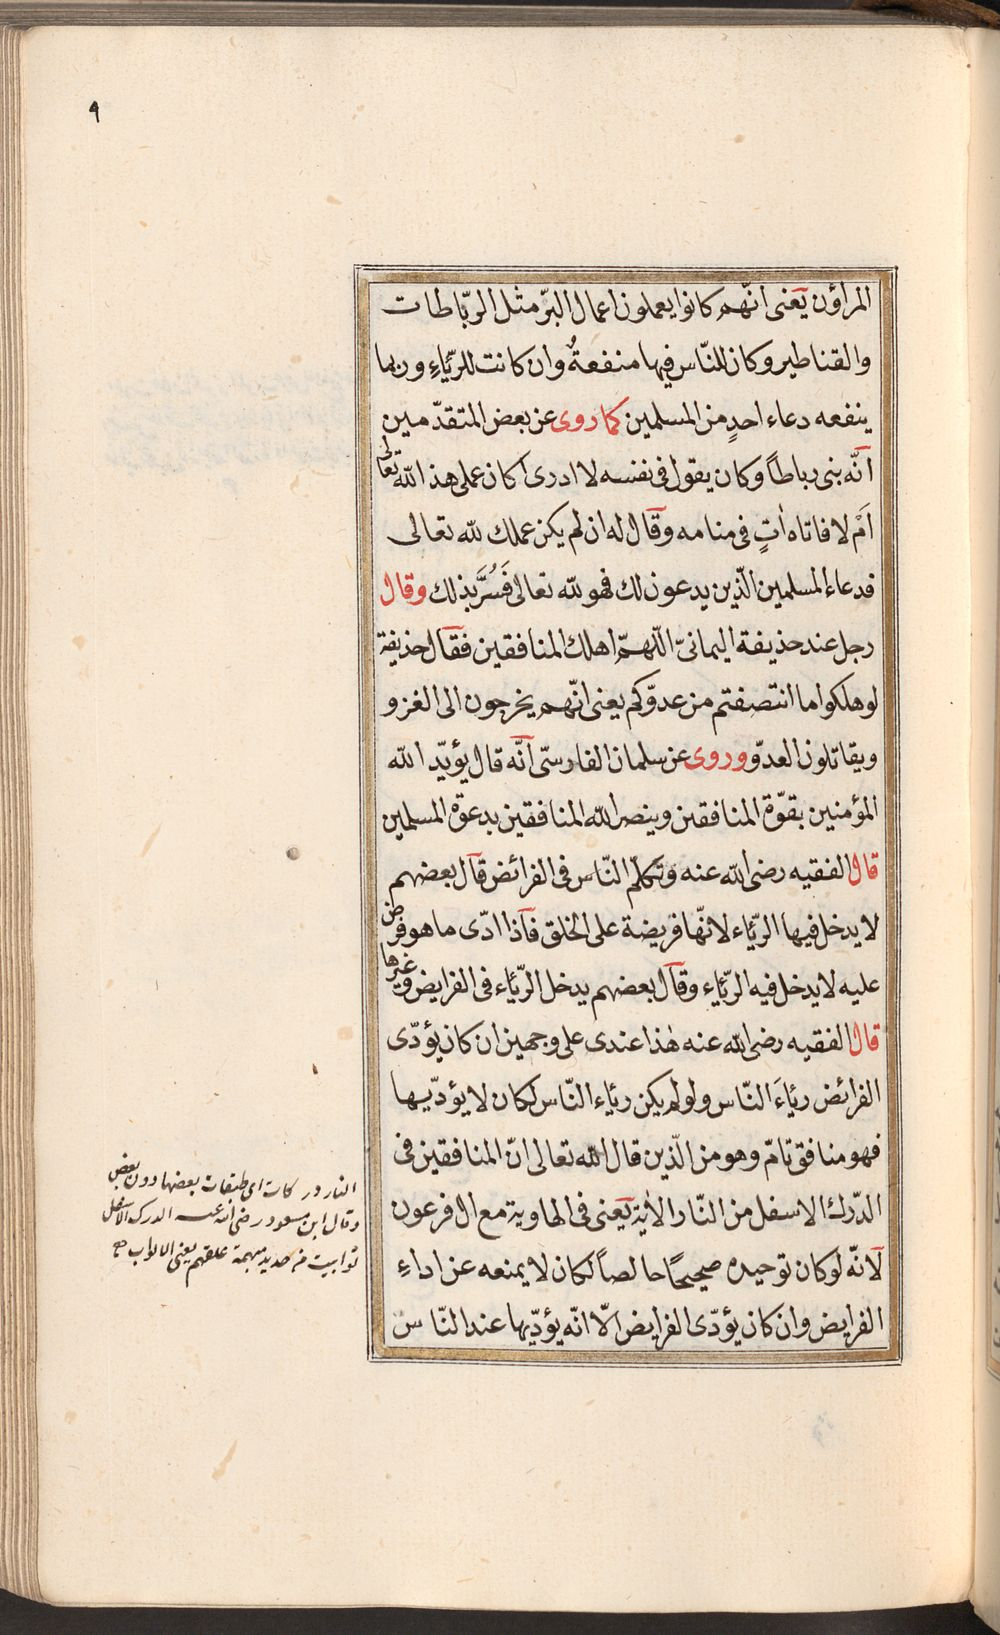 ٩
المراؤن يعنى انّهم كانوا يعملون اعمال البرّ مثل الرّباطات
والقناطير وكان للنّاس فيها منفعةٌ وان كانت للرّياءِ وربما
ينفعه دعاء احدٍ من المسلمين كما روى عن بعض المتقدّمين
انّه بنى رباطًا وكان يقول فى نفسه لا ادرى اكان عملى هذا لله تعالى
اَمْ لا فاتاه اٰتٍ فى منامه وقال له ان لم يكن عملك لله تعالى
فدعاء المسلمين الّذين يدعون لك فهو لله تعالى فَسُرَّ بذلك وقال
رجل عند حذيفة اليمانىّ اللّهمّ اهلك المنافقين فقال حذيفة
لو هلكوا ما انتصفتم من عدوّكم يعنى انّهم يخرجون الى الغزو
ويقاتلون العدوّ وروى عن سلمان الفارسىّ انّه قال يؤيّد الله
المؤمنين بقوّة المنافقين وينصر الله المنافقين بدعوة المسلمين
قال الفقيه رضى الله عنه وتكلّم النّاس فى الفرائض قال بعضهم
لا يدخل فيها الرّياء لانّها فريضة على الخلق فاذا ادّى ما هو فرض
عليه لا يدخل فيه الرّياء وقال بعضهم يدخل الرّياء فى الفرايض وغيرها
قال الفقيه رضى الله عنه هٰذا عندى على وجهين ان كان يؤدّى
الفرائض رياءَ النّاس ولو لم يكن رياء النّاس لكان لا يؤدّيها
فهو منافق تامّ وهو من الّذين قال الله تعالى انّ المنافقين فى
الدّرك الاسفل من النّار الاٰية يعنى فى الهاوية مع ال فرعون
لانّه لو كان توحيده صحيحًا خالصاً لكان لا يمنعه عن اداءِ
الفرايض وان كان يؤدّى الفرايض الّا انّه يؤدّيها عند النّاس
النار دركات اى طبقات بعضها دون بعض
وقال ابن مسعود رضى الله عنه الدرك الاسفل
توابيت من حديد مبهمة عليهم يعنى لا ابواب